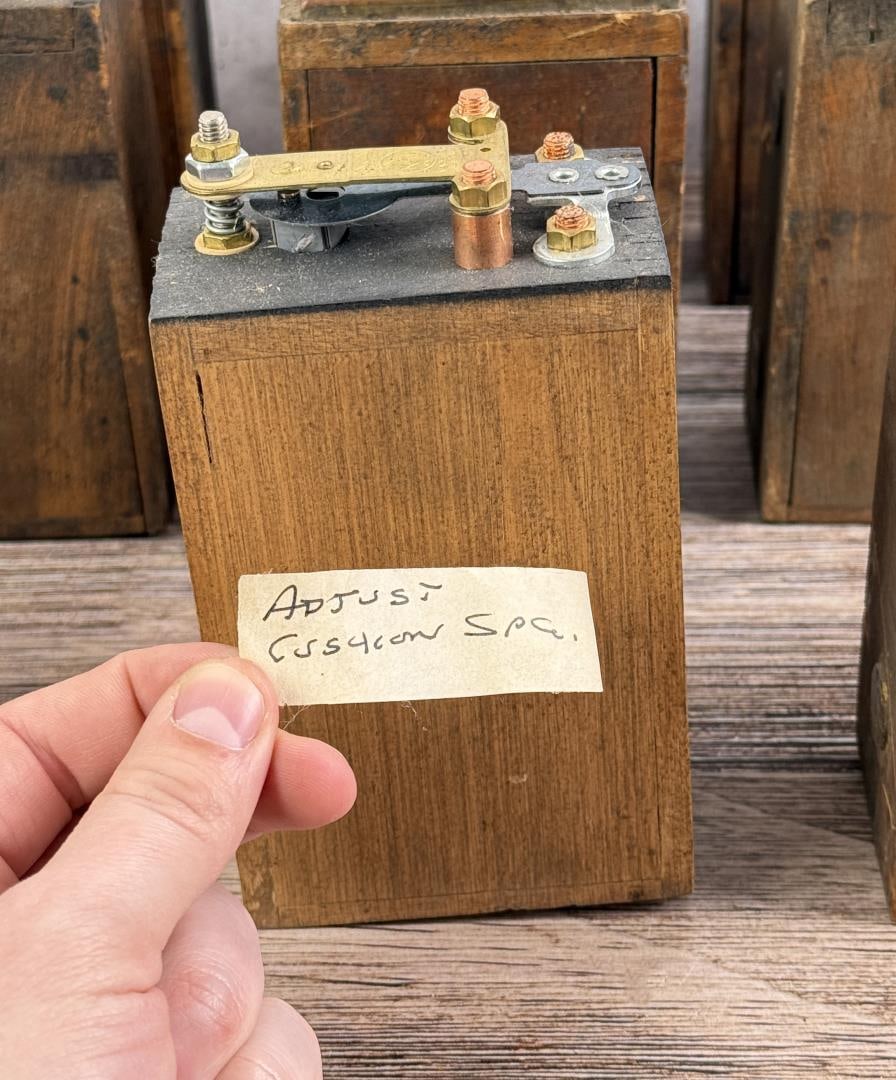 ADJUST
CUSHION SPG.